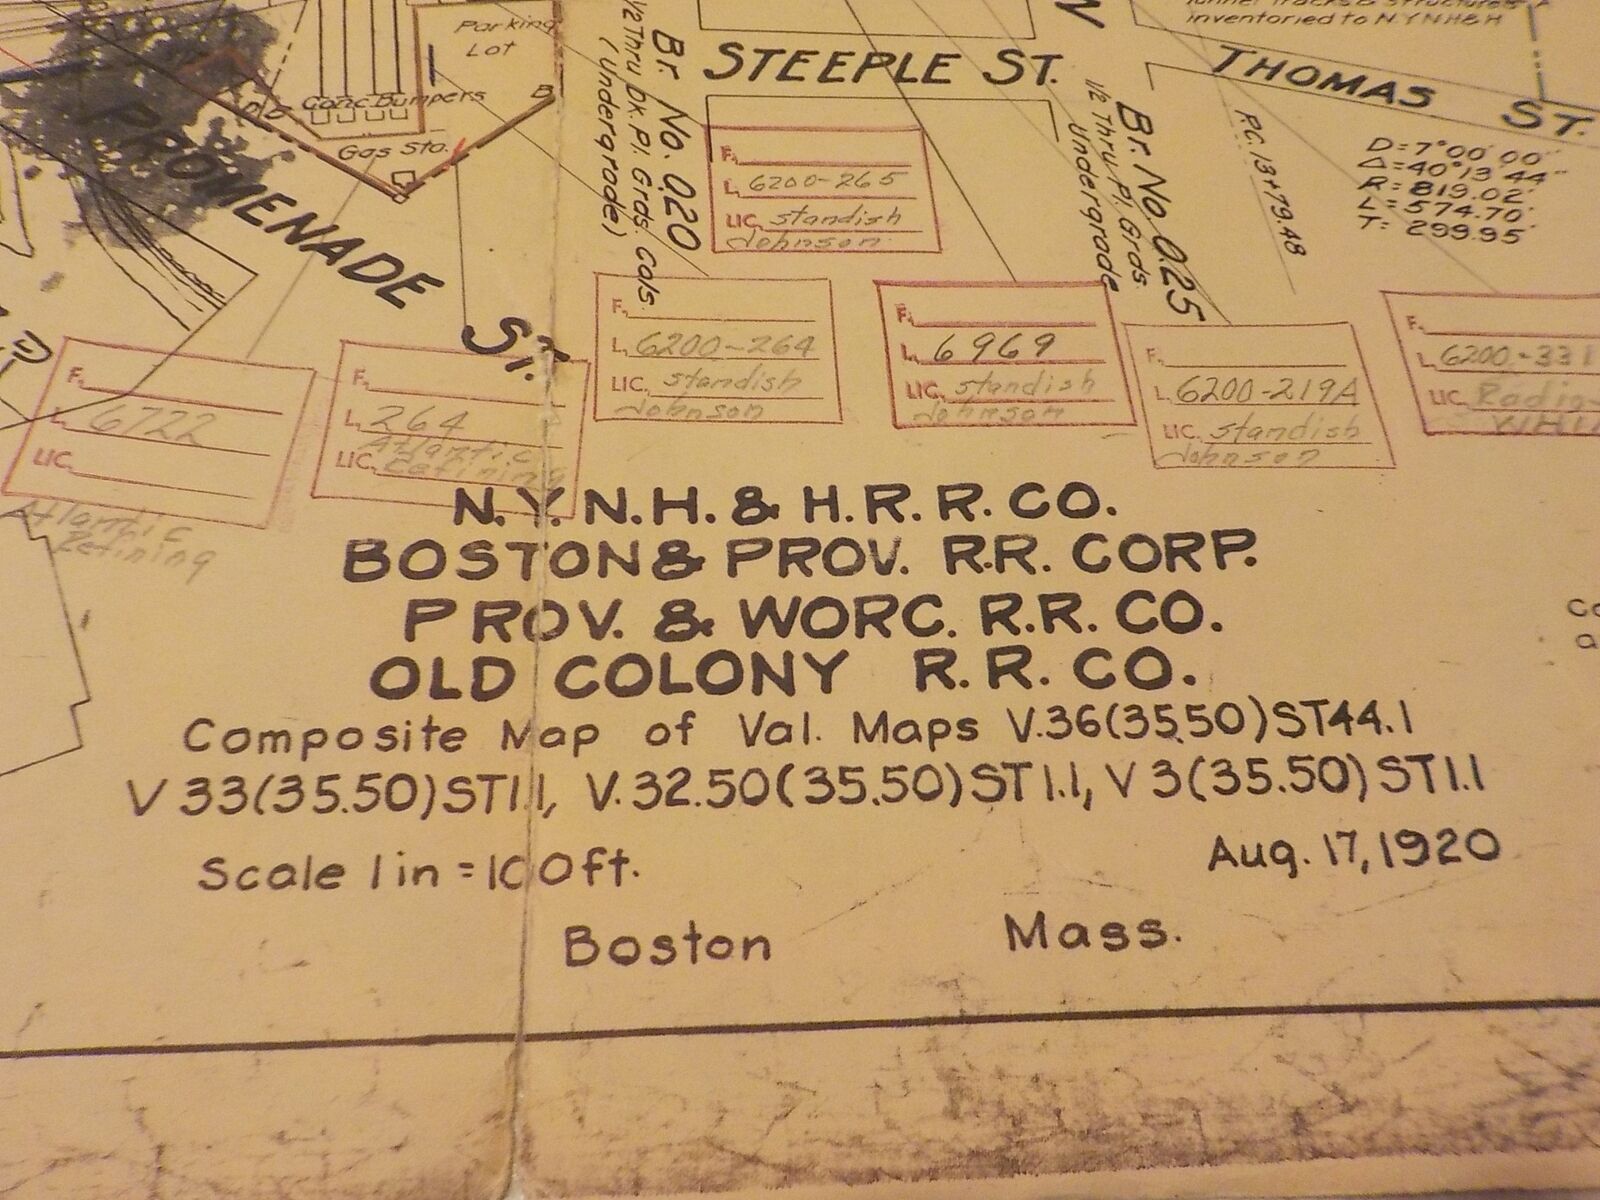 Tunnel Tracks & Structures
inventoried to N.Y.N.H.& H
Parking
Lot
Conc. Bumpers
B
Gas Sto.
PROMENADE
ST.
Br. No. 0.20
1/2 Thru Dk. Pl. Grds. Cols.
(Undergrade)
STEEPLE ST.
Br. No. 0.25
1/2 Thru Pl. Grds.
Undergrade
THOMAS ST.
P.C. 13+79.48
D=7°00'00"
Δ=40°13'44"
R=819.02'
L=574.70'
T=299.95'
F.
L. 6200-265
LIC. Standish
Johnson
F.
L. 6200-264
LIC. Standish
Johnson
F.
L. 6969
LIC. Standish
Johnson
F.
L. 6200-219A
LIC. Standish
Johnson
F.
L. 6200-331
LIC.
F.
L. 6722
LIC.
Atlantic
Refining
F.
L. 264
Atlantic
LIC. Refining
N.Y. N.H. & H.R.R. CO.
BOSTON & PROV. R.R. CORP.
PROV. & WORC. R.R. CO.
OLD COLONY R.R. CO.
Composite Map of Val. Maps V.36(35.50)ST44.1
V 33(35.50)ST1.1, V.32.50(35.50)ST1.1, V 3(35.50)ST1.1
Scale 1 in = 100 ft.
Aug. 17, 1920
Boston Mass.